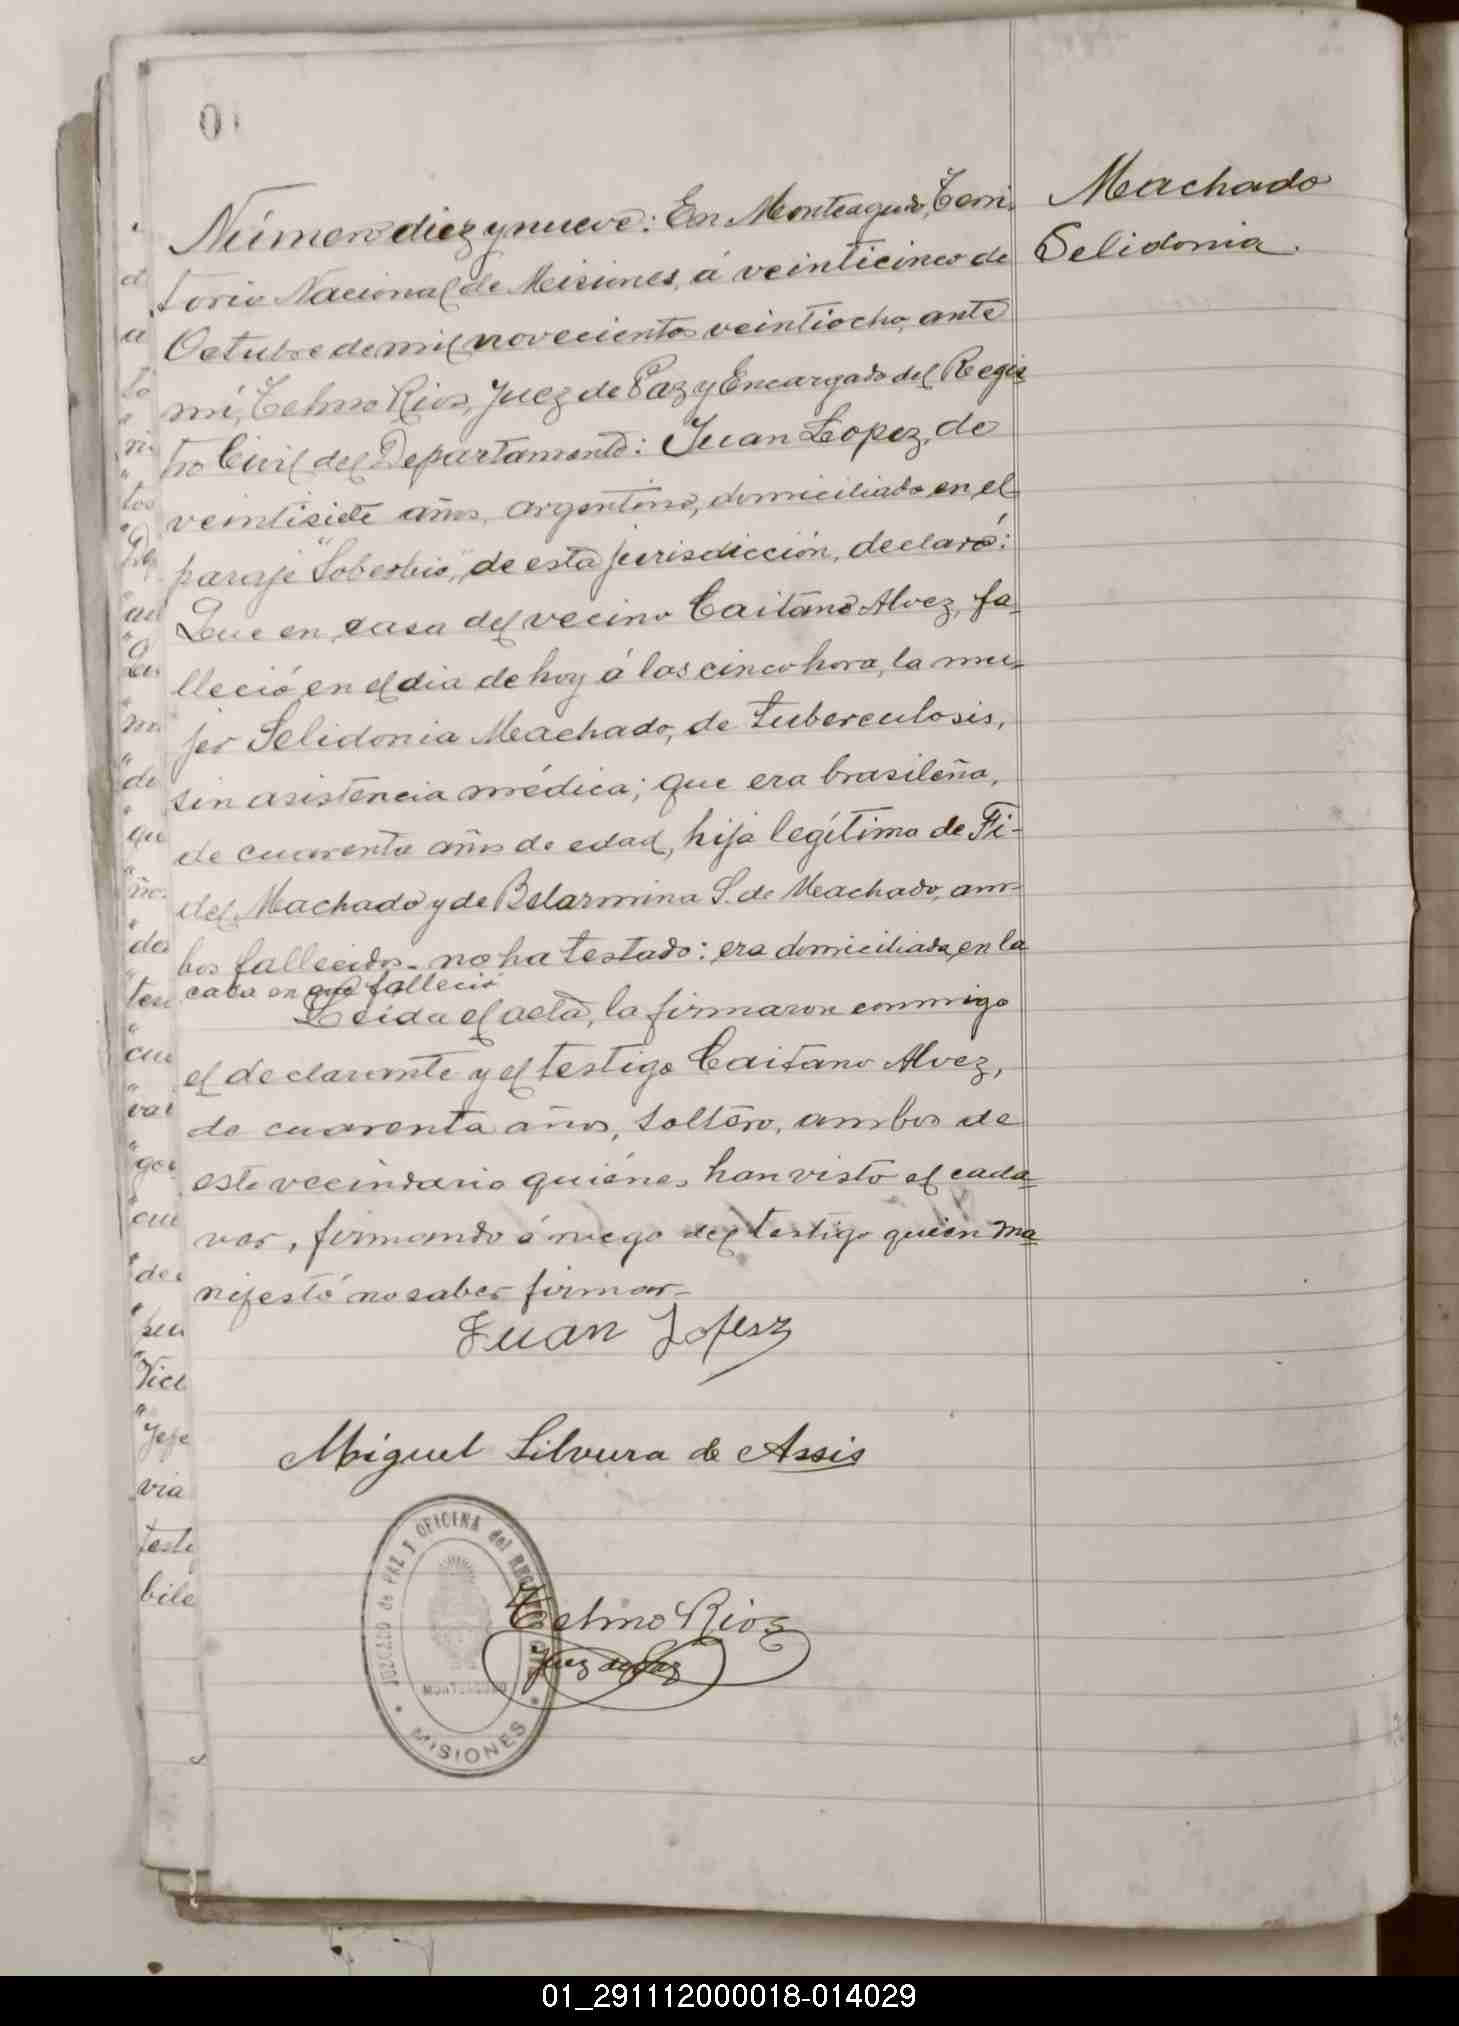 Machado
Selidonia.
Número diez y nueve: En Monteagudo, Terri-
torio Nacional de Misiones, á veinticinco de
Octubre de mil novecientos veintiocho, ante
mí, Telmo Rios, Juez de Paz y Encargado del Regis
tro Civil del Departamento: Juan Lopez, de
veintisiete años, argentino, domiciliado en el
paraje "Soberbio", de esta jurisdicción, declaró:
Que en casa del vecino Caitano Alvez, fa-
lleció en el dia de hoy á las cinco hora, la mu-
jer Selidonia Machado, de tuberculosis,
sin asistencia médica; que era brasileña,
de cuarenta años de edad, hija legítima de Fi-
del Machado y de Belarmina S. de Machado, am-
bos fallecidos - no ha testado: era domiciliada en la
casa en que falleció
Leida el acta, la firmaron conmigo
el declarante y el testigo Caitano Alvez,
de cuarenta años, soltero, ambos de
este vecindario quiénes han visto el cada-
ver, firmando á ruego del testigo quien ma-
nifestó no saber firmar-
Juan Lopesz
Miguel Silvura de Assis
JUZGADO de PAZ y OFICINA del
MONTEAGUDO
MISIONES
Telmo Rios
Juez de Paz
01_291112000018-014029